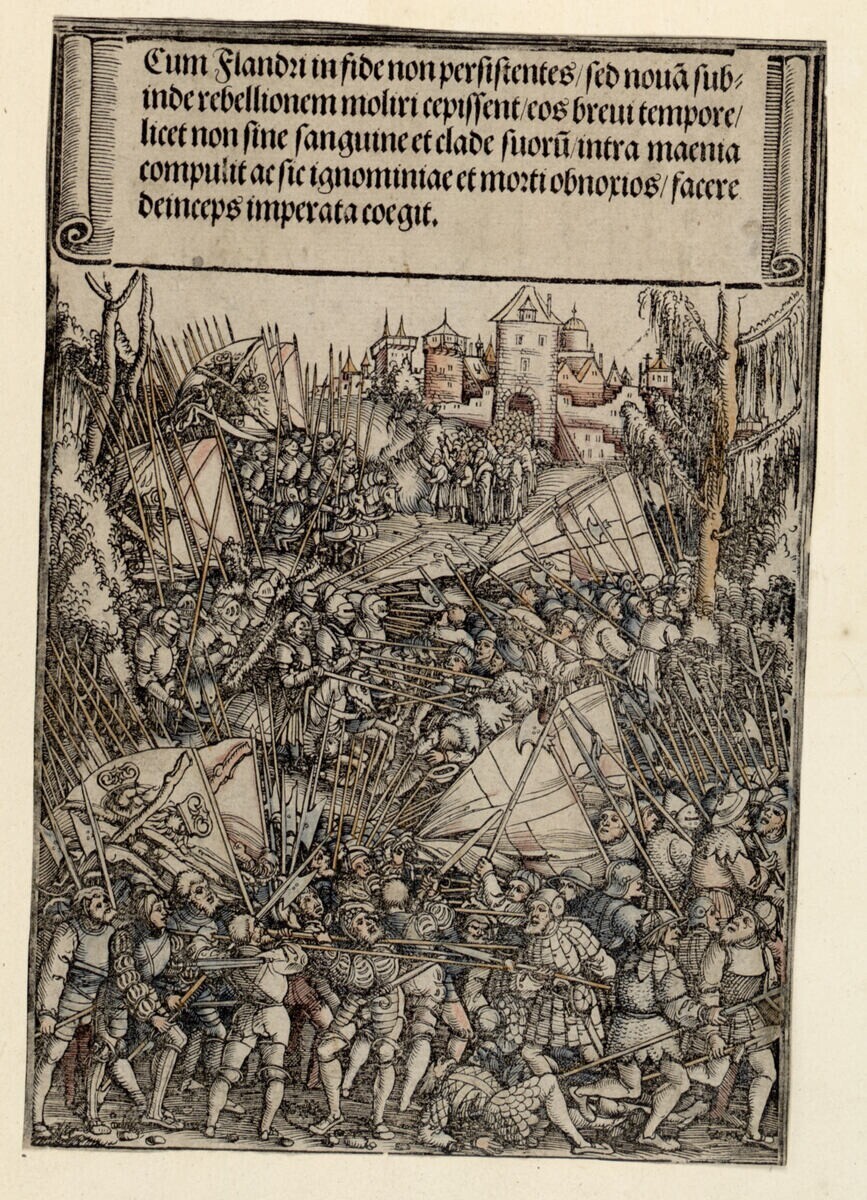 Cum Flandri in fide non persistentes/ sed nouā sub⸗
inde rebellionem moliri cepissent/ eos breui tempore/
licet non sine sanguine et clade suorū/ intra maenia
compulit ac sic ignominiae et morti obnoxios/ facere
deinceps imperata coegit.